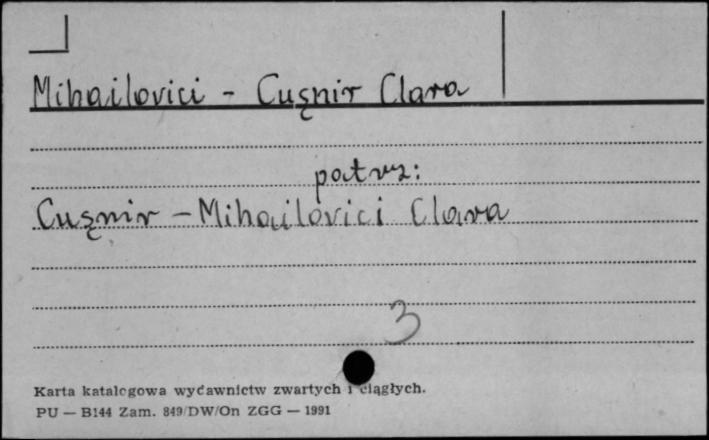 Mihailovici - Cuşnir Clara
patrz:
Cuşnir - Mihailovici Clara
3
Karta katalogowa wydawnictw zwartych i ciągłych.
PU — B144 Zam. 849/DW/On ZGG — 1991